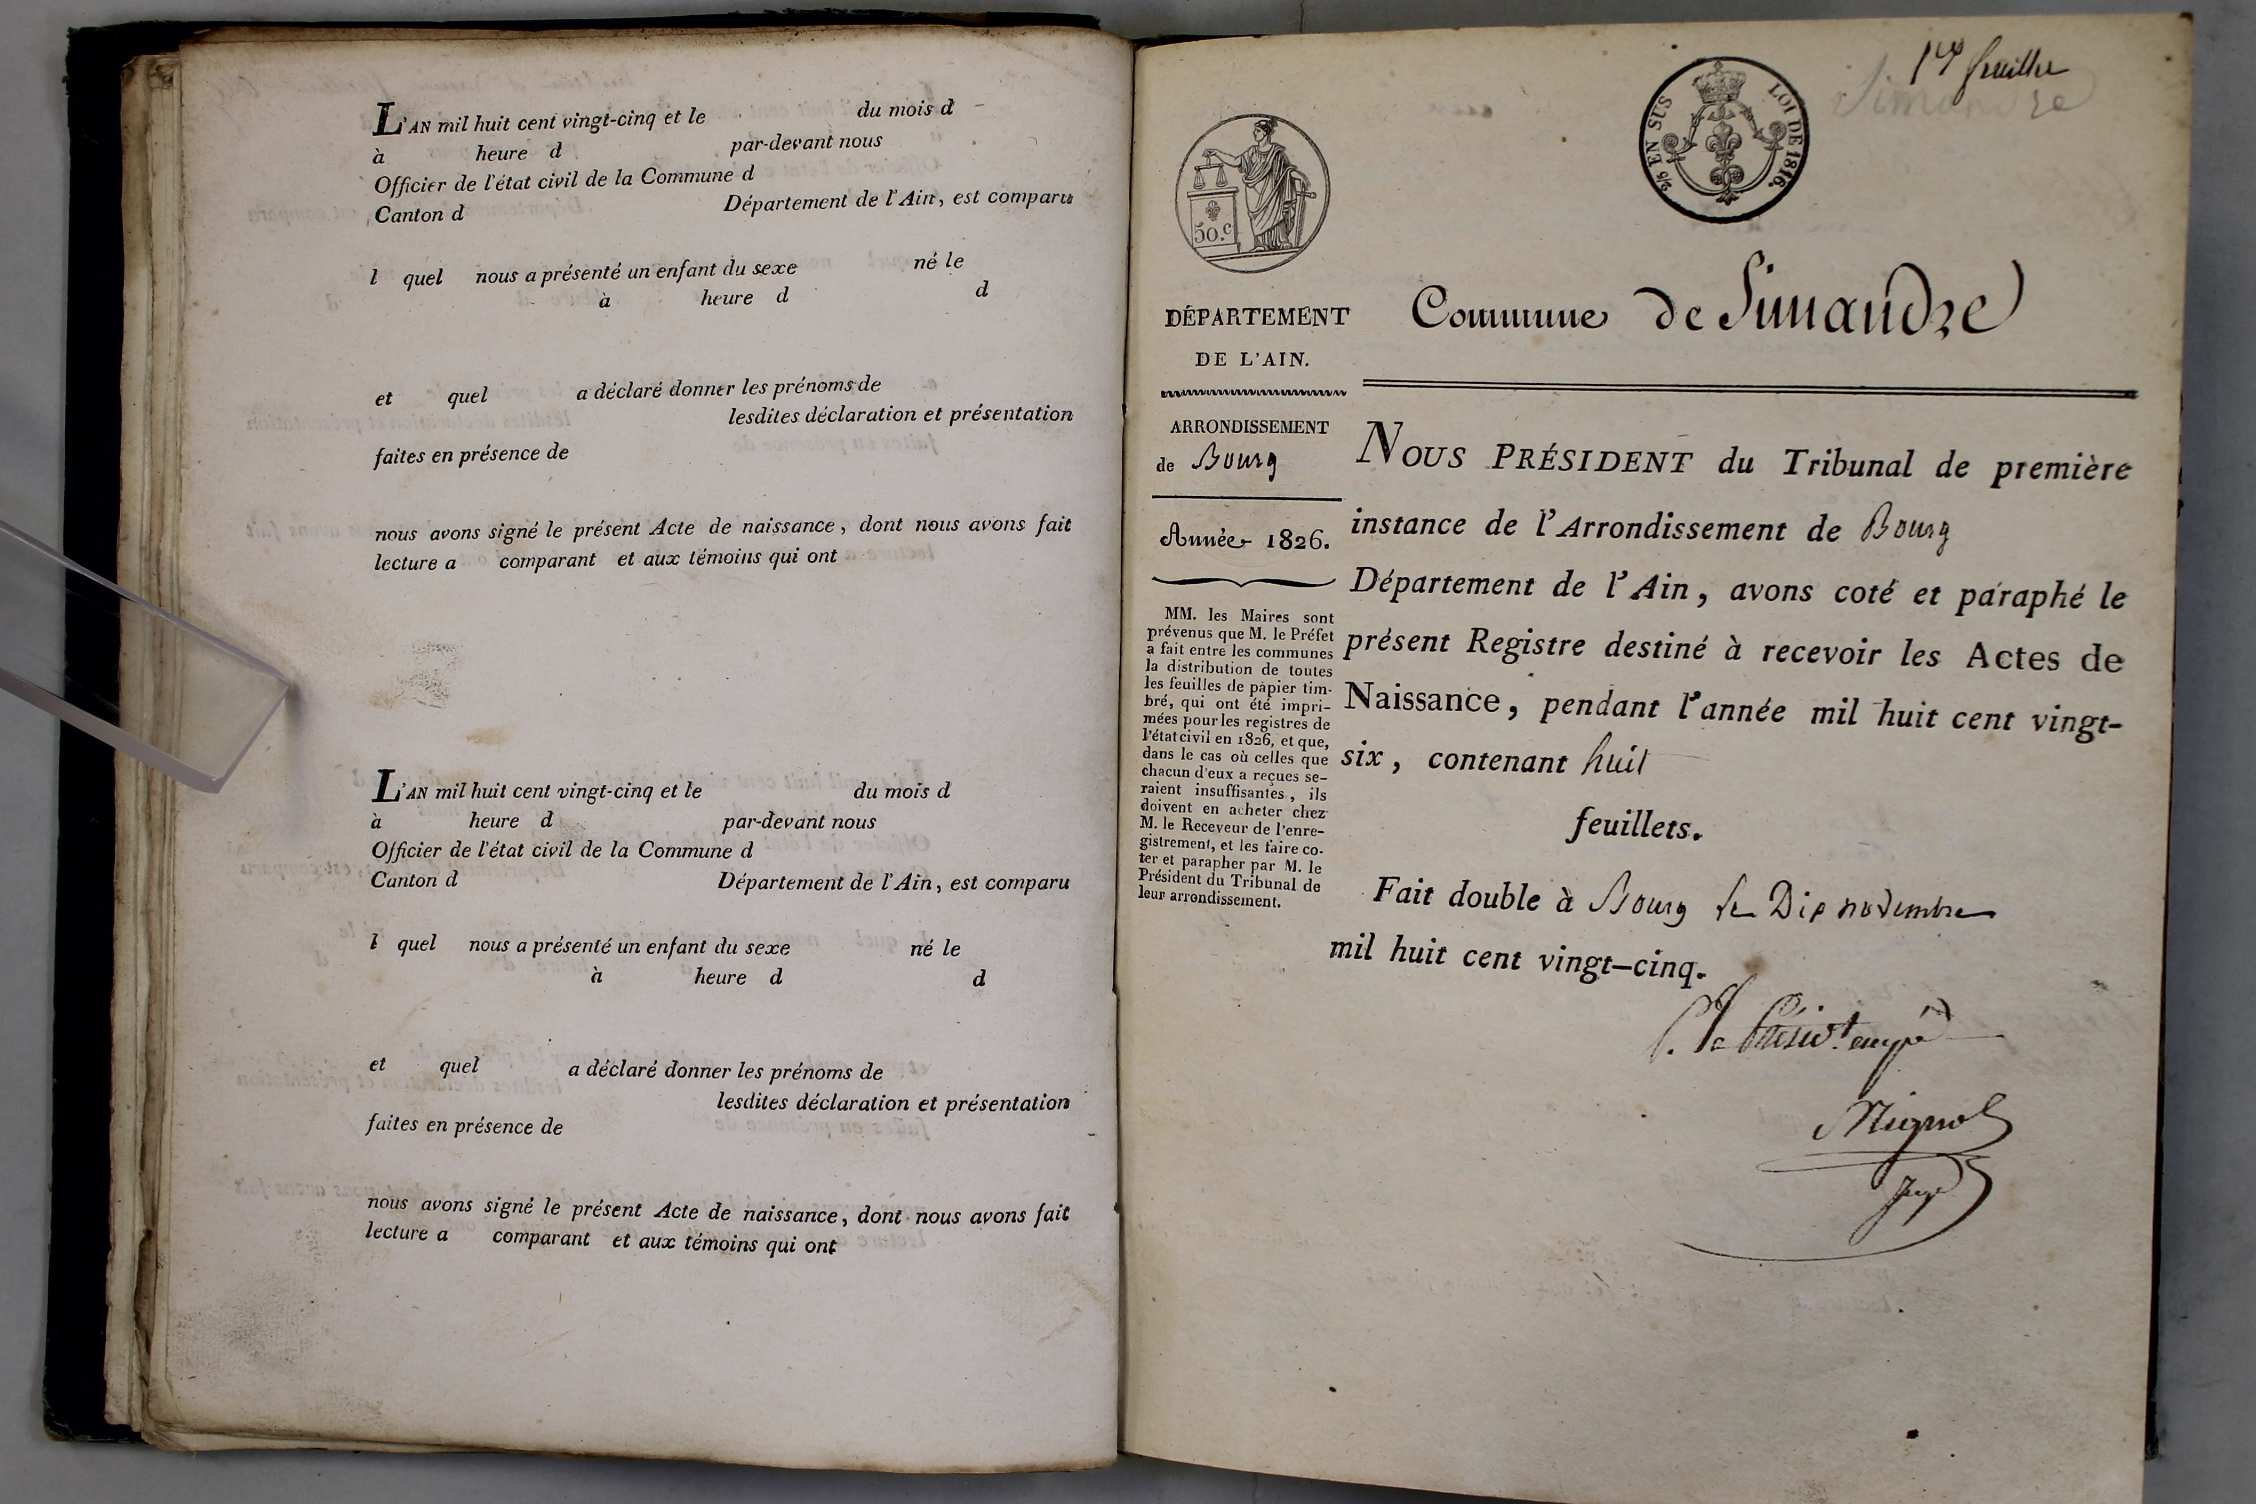 L'AN mil huit cent vingt-cinq et le du mois d
à heure d par-devant nous
Officier de l'état civil de la Commune d
Canton d Département de l'Ain, est comparu
l quel nous a présenté un enfant du sexe né le
à heure d d
et quel a déclaré donner les prénoms de
lesdites déclaration et présentation
faites en présence de
nous avons signé le présent Acte de naissance, dont nous avons fait
lecture a comparant et aux témoins qui ont
L'AN mil huit cent vingt-cinq et le du mois d
à heure d par-devant nous
Officier de l'état civil de la Commune d
Canton d Département de l'Ain, est comparu
l quel nous a présenté un enfant du sexe né le
à heure d d
et quel a déclaré donner les prénoms de
lesdites déclaration et présentation
faites en présence de
nous avons signé le présent Acte de naissance, dont nous avons fait
lecture a comparant et aux témoins qui ont
feuillet
Simandre
2/5 EN SUS LOI DE 1816.
50.c
Commune de Simandre
DÉPARTEMENT
DE L'AIN.
ARRONDISSEMENT
de Bourg
Année 1826.
MM. les Maires sont
prévenus que M. le Préfet
a fait entre les communes
la distribution de toutes
les feuilles de papier tim-
bré, qui ont été impri-
mées pour les registres de
l'état civil en 1826, et que,
dans le cas où celles que
chacun d'eux a reçues se-
raient insuffisantes, ils
doivent en acheter chez
M. le Receveur de l'enre-
gistrement, et les faire co-
ter et parapher par M. le
Président du Tribunal de
leur arrondissement.
NOUS PRÉSIDENT du Tribunal de première
instance de l'Arrondissement de Bourg
Département de l'Ain, avons coté et paraphé le
présent Registre destiné à recevoir les Actes de
Naissance, pendant l'année mil huit cent vingt-
six, contenant huit
feuillets.
Fait double à Bourg le Dix novembre
mil huit cent vingt-cinq.
P. le Présidt. empé
Mignot
Juge